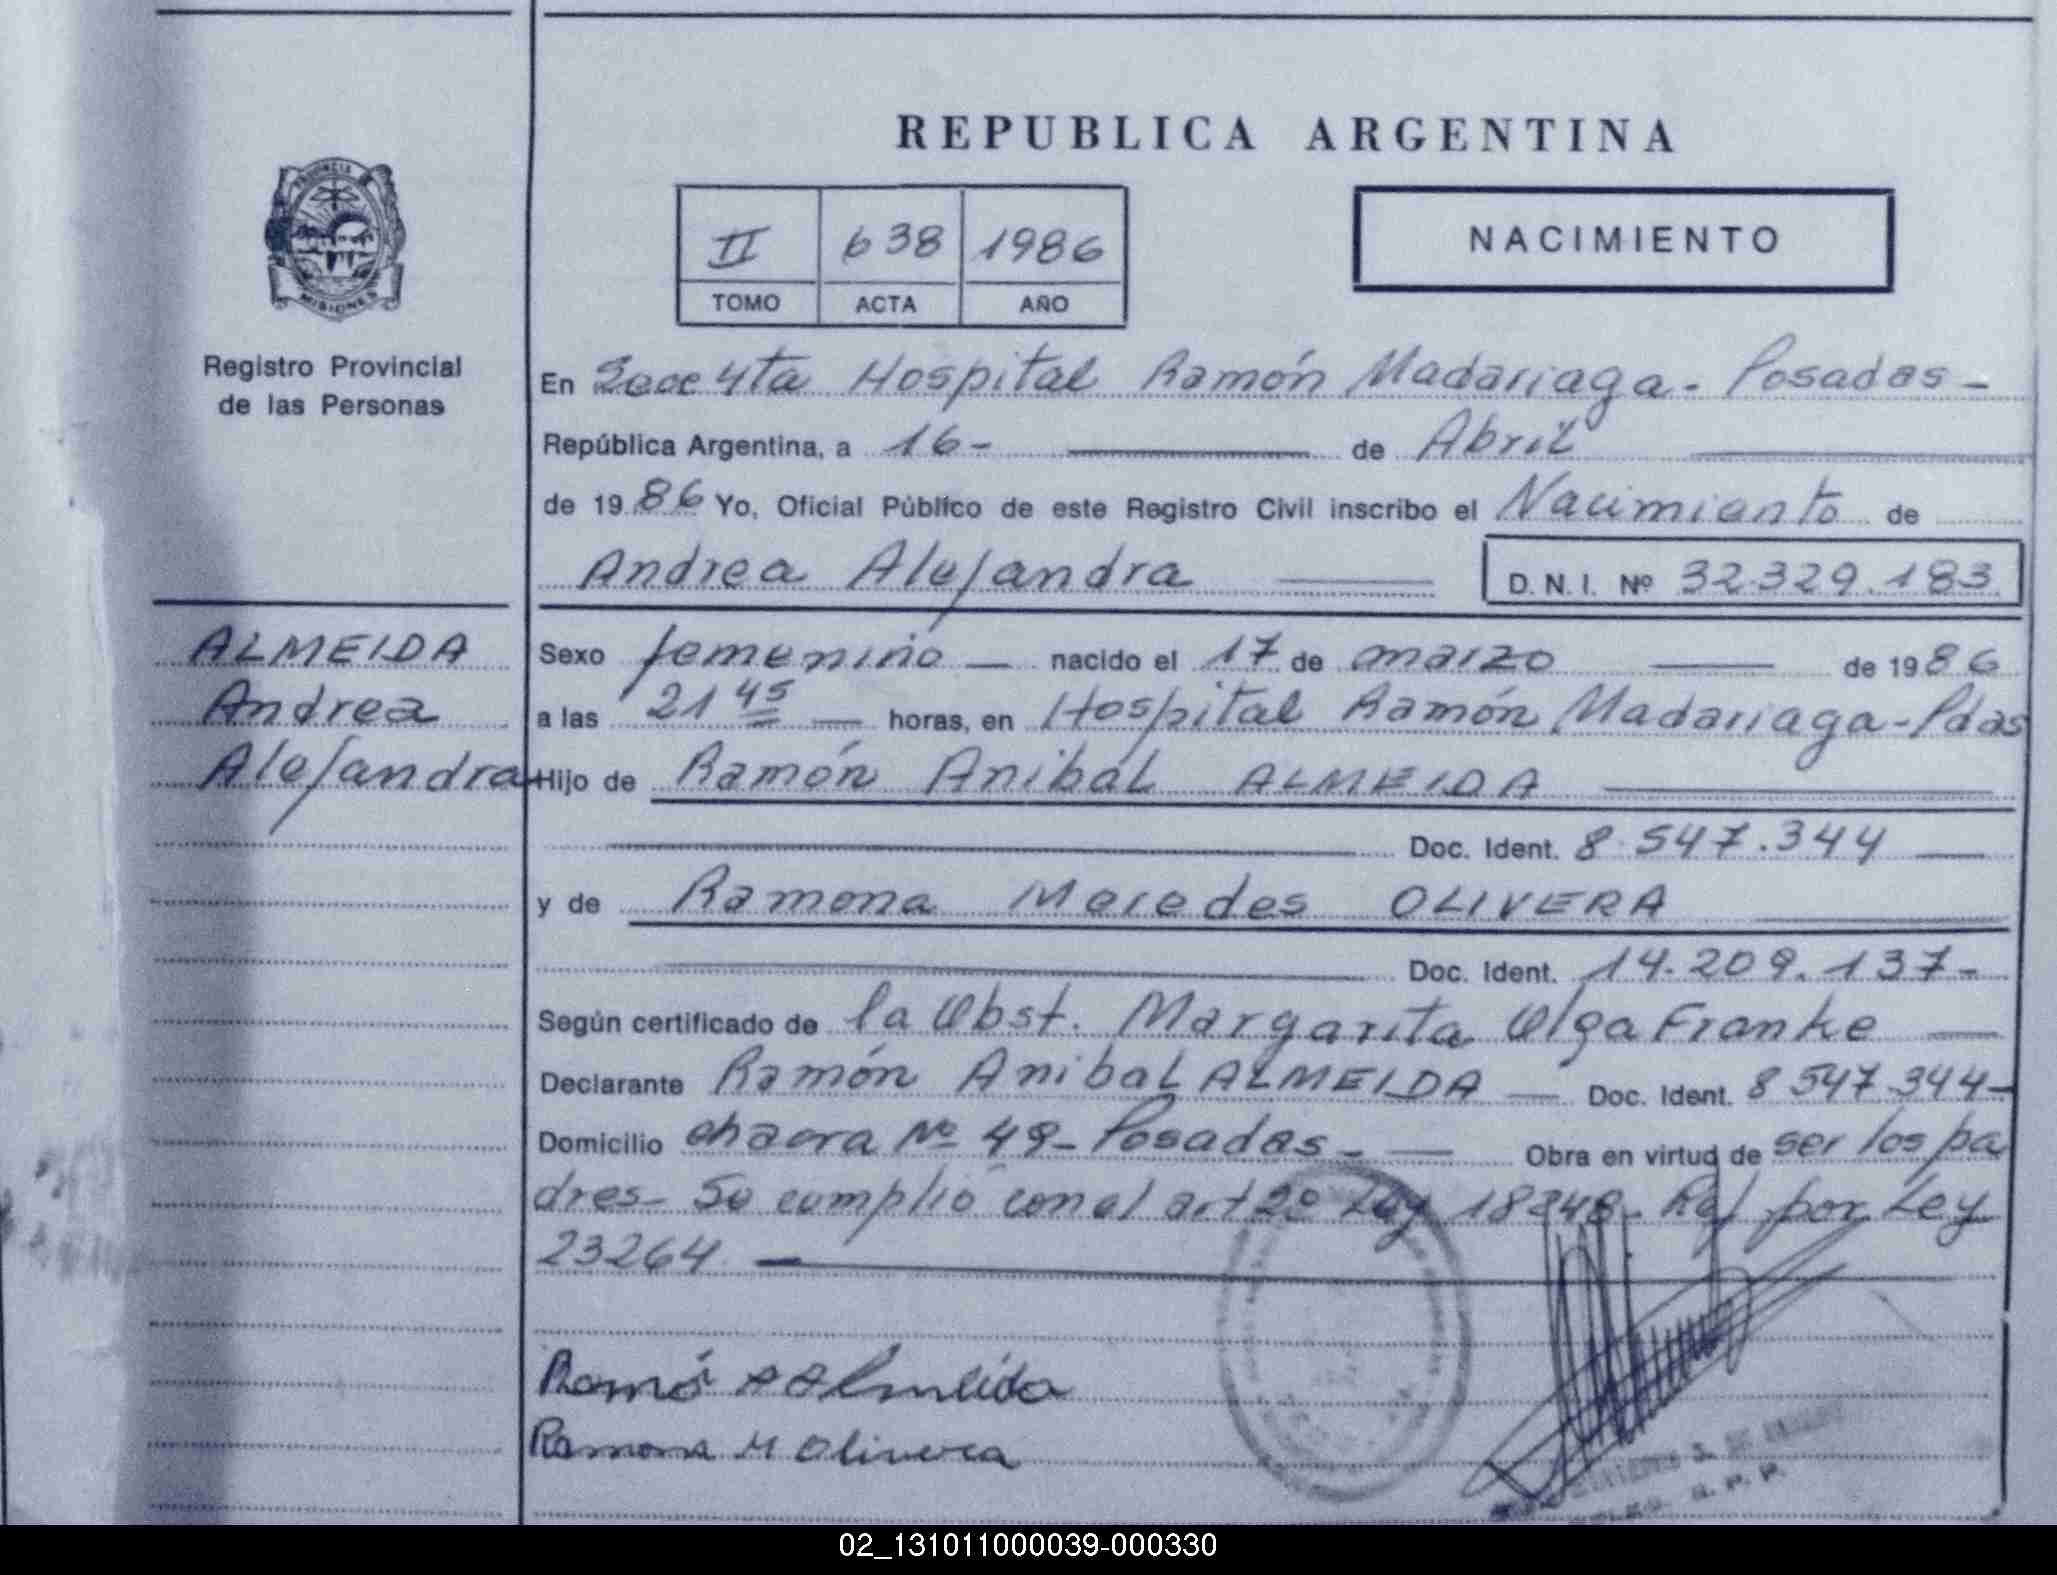 REPUBLICA ARGENTINA
PROVINCIA
MISIONES
Registro Provincial
de las Personas
II 638 1986
TOMO ACTA AÑO
NACIMIENTO
En Secc 4ta Hospital Ramón Madariaga - Posadas -
República Argentina, a 16 - de Abril
de 1986 Yo, Oficial Público de este Registro Civil inscribo el Nacimiento de
Andrea Alejandra D.N.I. Nº 32.329.183
ALMEIDA
Andrea
Alejandra
Sexo femenino — nacido el 17 de marzo de 1986
a las 21 45 — horas, en Hospital Ramón Madariaga - Pdas
Hijo de Ramón Anibal ALMEIDA
Doc. Ident. 8.547.344
y de Ramona Mercedes OLIVERA
Doc. Ident. 14.209.137-
Según certificado de la Obst. Margarita Olga Franke
Declarante Ramón Anibal ALMEIDA — Doc. Ident. 8547.344-
Domicilio chacra Nº 49- Posadas - — Obra en virtud de ser los pa
dres- Se cumplió con el art 2º Ley 18248- Ref por Ley
23264 —
Ramó A Almeida
Ramona M Olivera
02_131011000039-000330